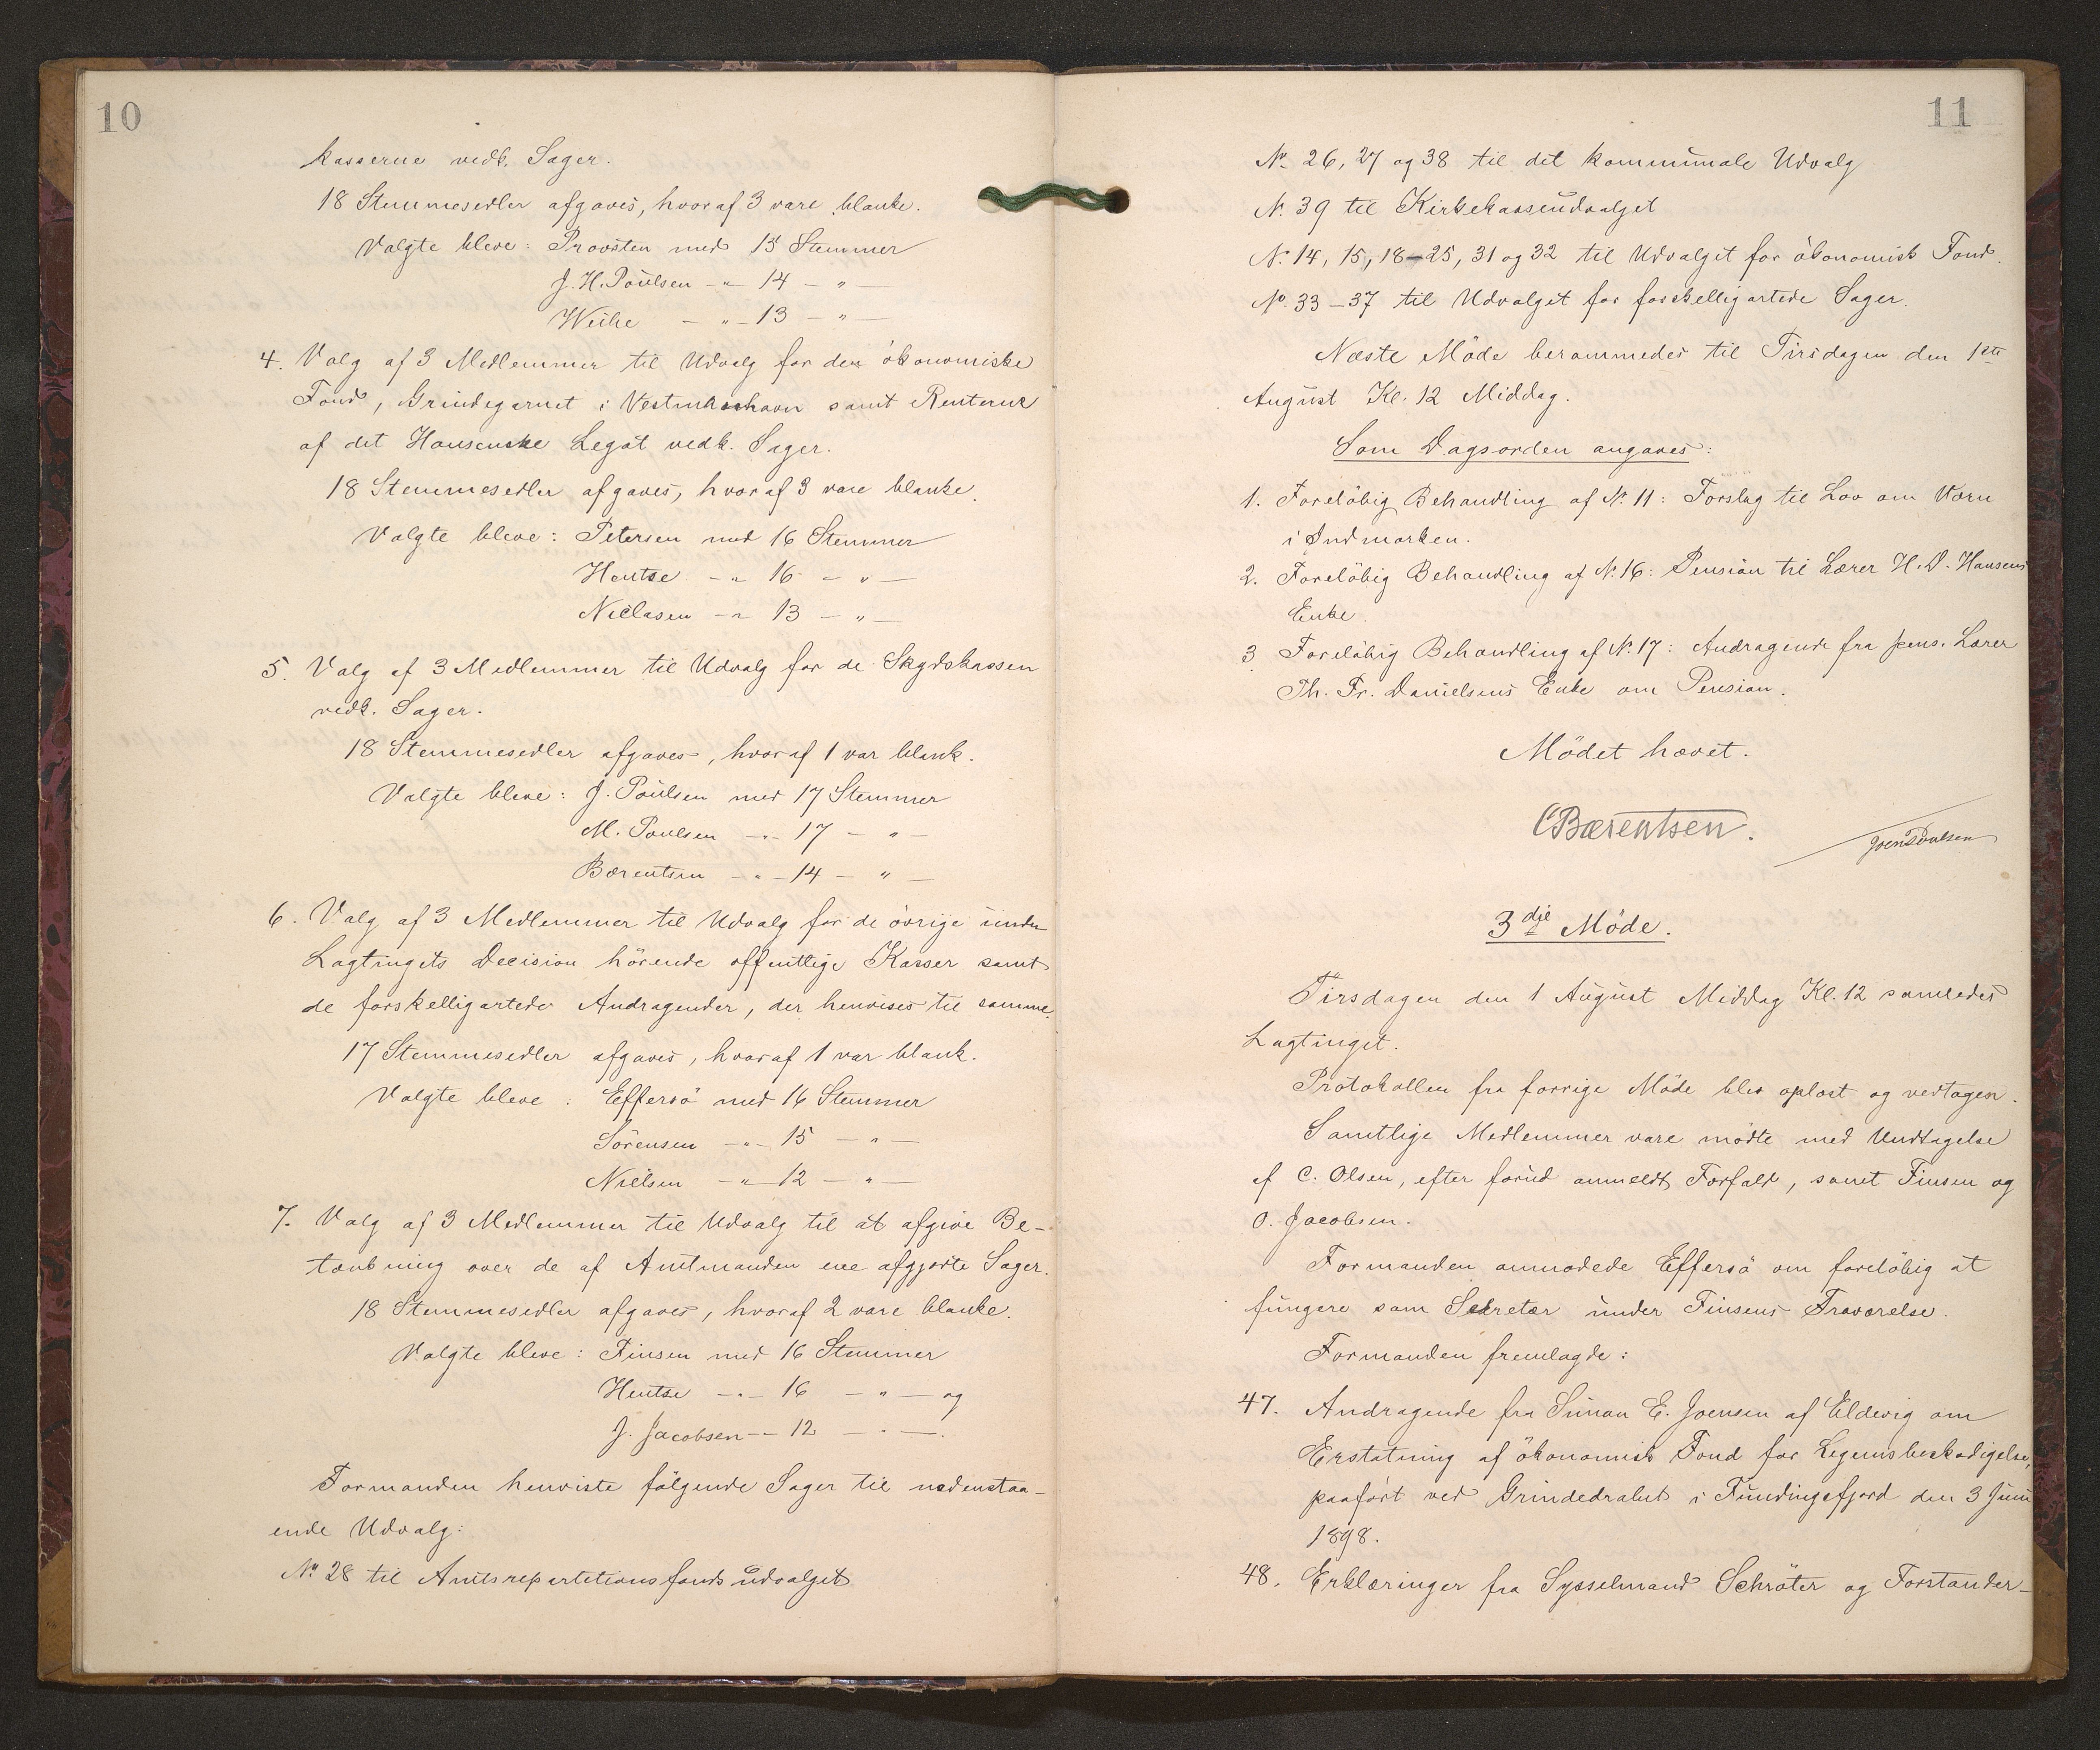 10
kasserne vedk. Sager.
18 Stemmesedler afgaves, hvoraf 3 vare blanke.
Valgte bleve: Provsten med 15 Stemmer
J. H. Poulsen -"- 14 - " -
Weihe - " - 13 - " -
4. Valg af 3 Medlemmer til Udvalg for den økonomiske
Fond, Grindegarnet i Vestmanhavn samt Renterne
af det Hansenske Legat vedk. Sager.
18 Stemmesedler afgaves, hvoraf 3 vare blanke.
Valgte bleve: Petersen med 16 Stemmer
Hentze -"- 16 - " -
Niclasen -"- 13 - " -
5. Valg af 3 Medlemmer til Udvalg for de Skydskassen
vedk. Sager.
18 Stemmesedler afgaves, hvoraf 1 var blank.
Valgte bleve: J. Poulsen med 17 Stemmer
M. Poulsen -"- 17 - " -
Bærentsen -"- 14 - " -
6. Valg af 3 Medlemmer til Udvalg for de övrige under
Lagtingets Decision hörende offentlige Kasser samt
de forskelligartede Andragender, der henvises til samme.
17 Stemmesedler afgaves, hvoraf 1 var blank.
Valgte bleve: Effersö med 16 Stemmer
Sörensen -"- 15 - " -
Nielsen -"- 12 - " -
7. Valg af 3 Medlemmer til Udvalg til at afgive Be-
tænkning over de af Amtmanden ene afgjorte Sager.
18 Stemmesedler afgaves, hvoraf 2 vare blanke.
Valgte bleve: Finsen med 16 Stemmer
Hentze -"- 16 - " - og
J. Jacobsen -"- 12 - " -.
Formanden henviste fölgende Sager til nedenstaa-
ende Udvalg:
No 28 til Amtsrepartitionsfondsudvalget
11
No. 26, 27 og 38 til det kommunale Udvalg
N. 39 til Kirkekasseudvalget
N. 14, 15, 18-25, 31 og 32 til Udvalget for ökonomisk Fond.
No. 33-37 til Udvalget for forskelligartede Sager.
Næste Möde berammedes til Tirsdagen den 1ste
August Kl. 12 Middag.
Som Dagsorden angaves:
1. Foreløbig Behandling af N. 11: Forslag til Lov om Værn
i Indmarken.
2. Foreløbig Behandling af N. 16: Pension til Lærer H. D. Hansens
Enke.
3 Foreløbig Behandling af N. 17: Andragende fra pens. Lærer
Th. Fr. Danielsens Enke om Pension.
Mödet hævet.
CBærentsen.
Joen Poulsen
3die Möde.
Tirsdagen den 1 August Middag Kl. 12 samledes
Lagtinget.
Protokollen fra forrige Möde blev oplæst og vedtagen.
Samtlige Medlemmer vare mödte med Undtagelse
af C. Olsen, efter forud anmeldt Forfald, samt Finsen og
O. Jacobsen.
Formanden anmodede Effersö om foreløbig at
fungere som Sekretær under Finsens Fraværelse.
Formanden fremlagde:
47. Andragende fra Simon E. Joensen af Eldevig om
Erstatning af ökonomisk Fond for Legemsbeskadigelse,
paafört ved Grindedrabet i Fundingsfjord den 3 Juni
1898.
48. Erklæringer fra Sysselmand Schröter og Forstander-